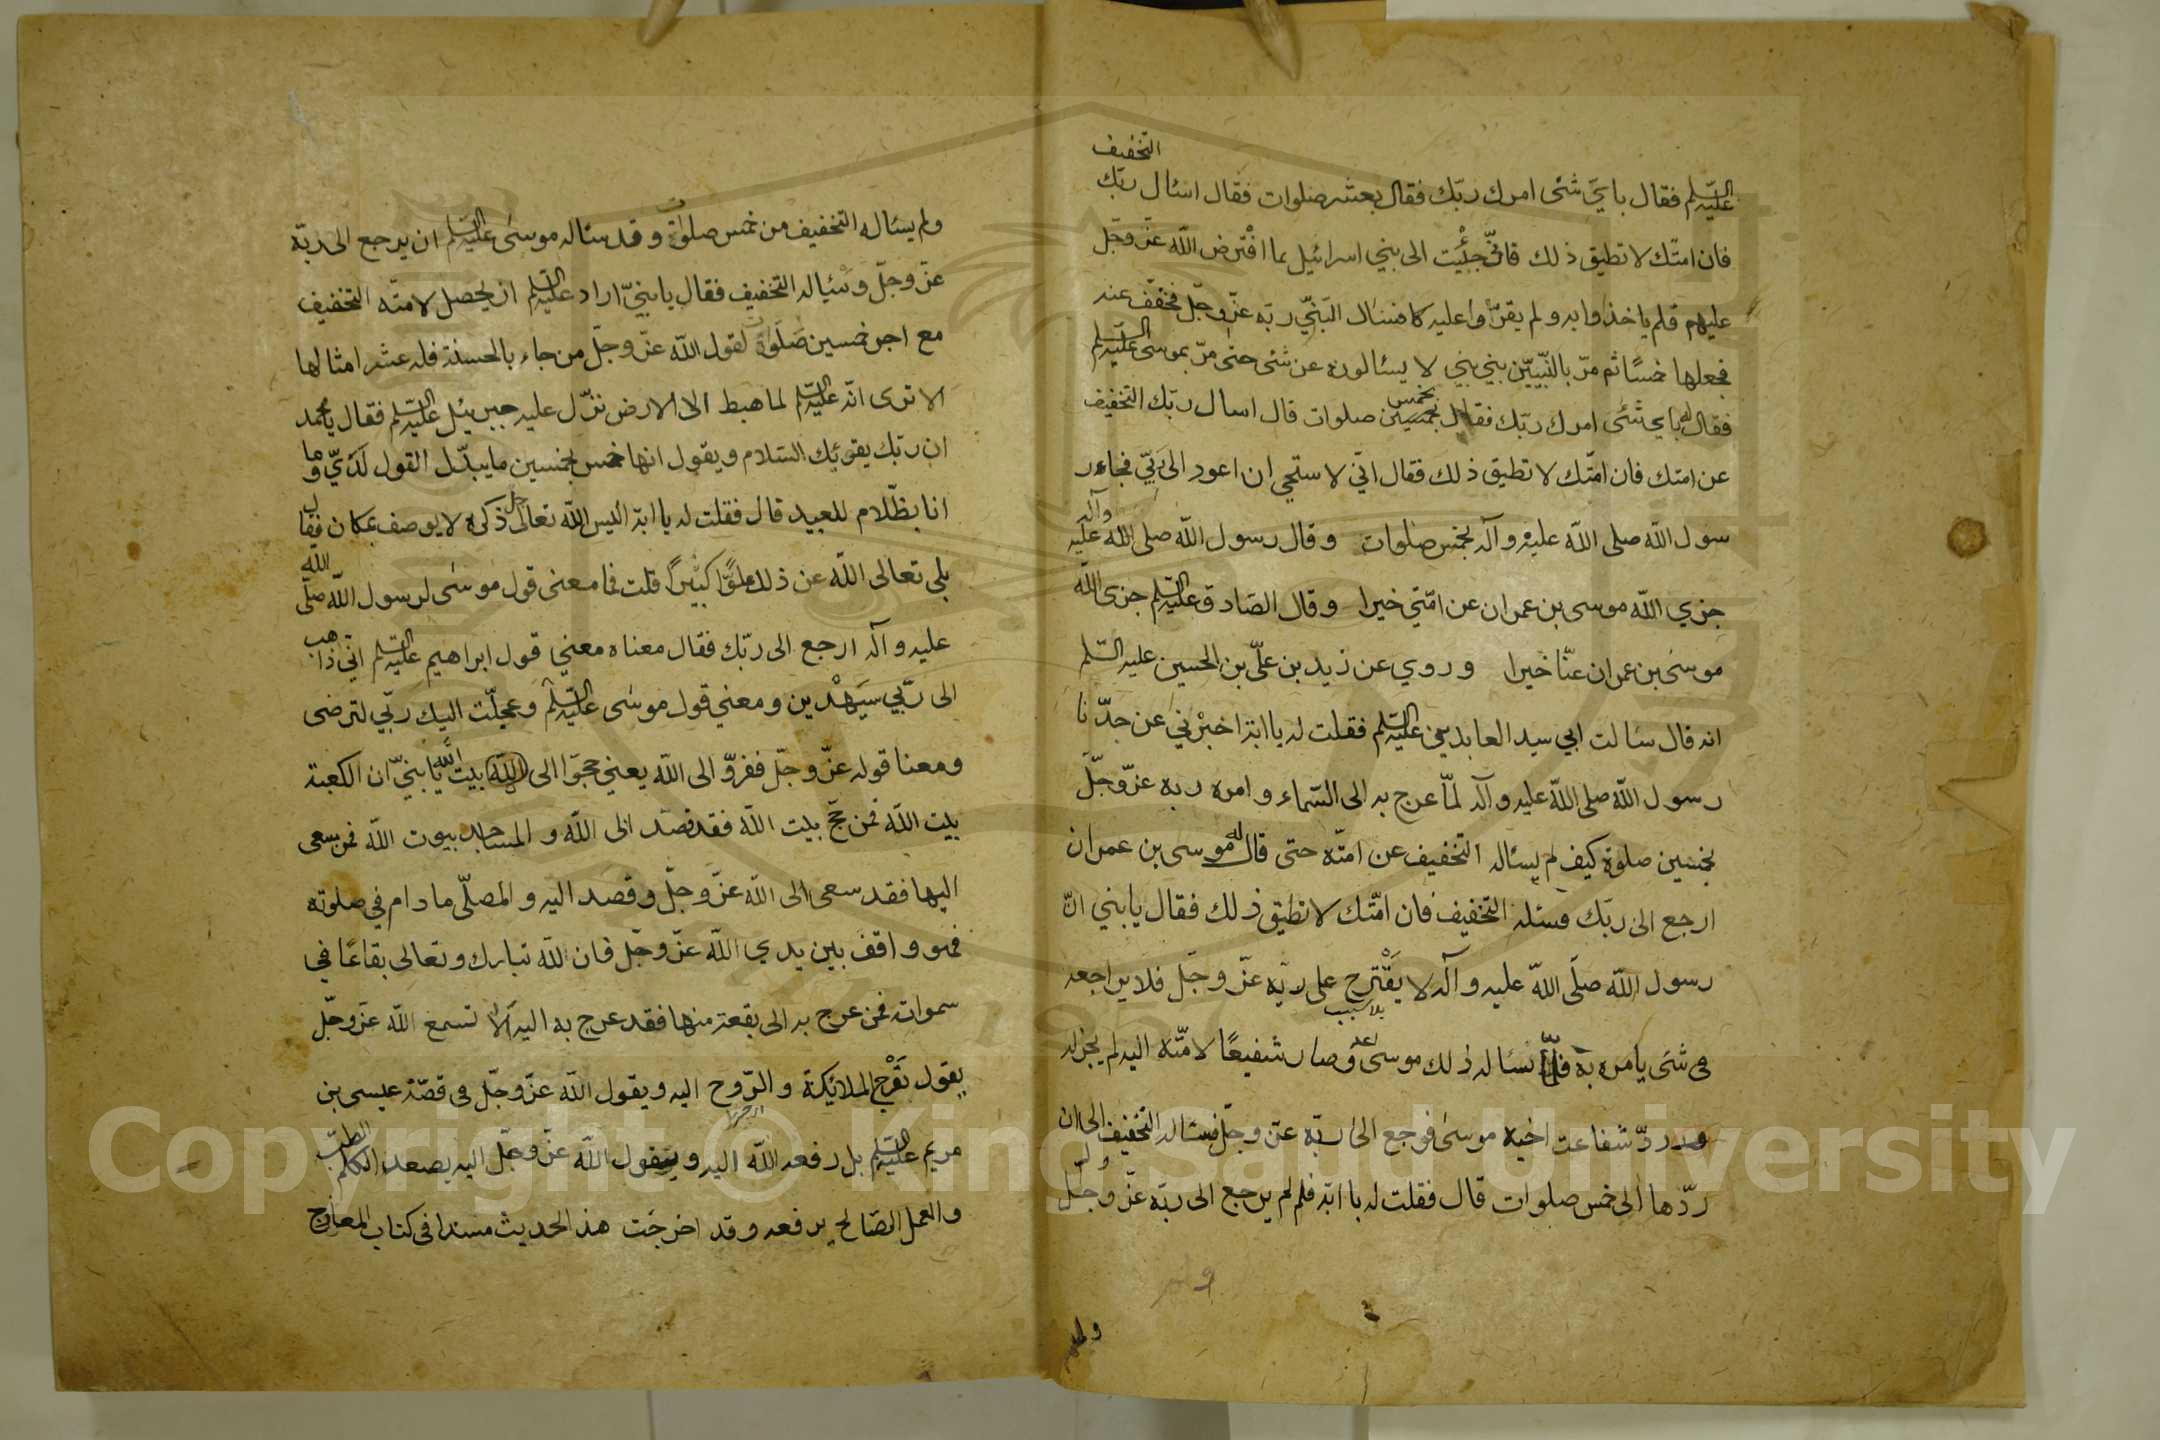 التخفيف
عليه السّلم فقال بايّ شئ امرك ربّك فقال بعشر صلوات فقال اسئال ربّك
فان امتّك لا تطيق ذلك فانّي جئت الى بني اسرائيل بما افترض اللّه عزّ وجلّ
عليهم فلم ياخذوا به ولم يقرّوا عليه فسئال النبيّ ربّه عزّ وجلّ فخفّف عنه
فجعلها خمسًا ثم مرّ بالنّبيّين نبي نبي لا يسئالونه عن شئ حتى مرّ بموسى عليه السّلم
فقال له باي شئ امرك ربّك فقال بخمس صلوات قال اسال ربّك التخفيف
عن امتك فان امّتك لا تطيق ذلك فقال انّي لاستحيي ان اعود الى ربّي فجاء ر
سول اللّه صلى اللّه عليه وآله بخمس صلوات وقال رسول اللّه صلى اللّه عليه وآله
جزي اللّه موسى بن عمران عن امّتي خيرا وقال الصّادق عليه السّلم جزى اللّه
موسى بن عمران عنّا خيرا وروي عن زيد بن علّي بن الحسين عليه السّلم
انه قال سالت ابي سيد العابدين عليه السّلم فقلت له يا ابة اخبرني عن جدّنا
رسول اللّه صلى اللّه عليه وآله لمّا عرج به الى السّماء وامره ربه عزّ وجلّ
بخمسين صلوة كيف لم يسئاله التخفيف عن امتّه حتى قال له موسى بن عمران
ارجع الى ربّك فسئله التخفيف فان امّتك لا تطيق ذلك فقال يا بني انّ
رسول اللّه صلّى اللّه عليه وآله لا يقترح على ربّه عزّ وجلّ فلا يراجعه
في شئ يامره به فلمّا سئاله ذلك موسى وصار شفيعًا لامّته اليه لم يجز له
ردّ شفاعة اخيه موسى فرجع الى ربّه عزّ وجلّ فسئاله التخفيف الى ان
ردّها الى خمس صلوات قال فقلت له يا ابة فلم لم يرجع الى ربّه عزّ وجلّ
ولم يسئاله التخفيف من خمس صلوات وقد سئاله موسى عليه السّلم ان يرجع الى ربّه
عزّ وجلّ وسئياله التخفيف فقال يا بنيّ اراد عليه السّلم ان يحصل لامتّه التخفيف
مع اجر خمسين صلوات لقول اللّه عزّ وجلّ من جاء بالحسنة فله عشر امثالها
الا ترى انّه عليه السّلم لما هبط الى الارض نزّل عليه جبرئيل عليه السّلم فقال يا محمد
ان ربّك يقرئك السّلام ويقول انها خمس بخمسين ما يبدّل القول لديّ وما
انا بظّلام للعبيد قال فقلت له يا ابة اليس اللّه تعالى جل ذكره لا يوصف بمكان فقال
بلي تعالى اللّه عن ذلك علوًّا كبيرًا قلت فما معنى قول موسى لرسول اللّه صلى اللّه
عليه وآله ارجع الى ربّك فقال معناه معني قول ابراهيم عليه السّلم اني ذاهب
الى ربّي سيهدين ومعني قول موسى عليه السّلم وعجلّت اليك ربّي لترضى
ومعنا قوله عزّ وجلّ ففرّو الى اللّه يعني حجّوا الى بيت اللّه يا بنيّ ان الكعبة
بيت اللّه فمن حجّ بيت اللّه فقد قصد الى اللّه و المساجد بيوت اللّه فمن سعى
اليها فقد سعى الى اللّه عزّ وجلّ وقصد اليه والمصلّى ما دام في صلوته
فهو واقف بين يدي اللّه عزّ وجلّ فان للّه تبارك وتعالى بقاعًا في
سمواته فمن عرج به الى بقعة منها فقد عرج به اليه الا تسمع اللّه عزّ وجلّ
يقول تعرج الملائكة والرّوح اليه ويقول اللّه عزّ وجلّ في قصّة عيسى بن
مريم عليه السّلم بل رفعه اللّه اليه ويقول اللّه عزّ وجلّ اليه يصعد الكلم الطيّب
والعمل الصّالح يرفعه وقد اخرجت هذ الحديث مسندا في كتاب المعارج
Copyright © King Saud University